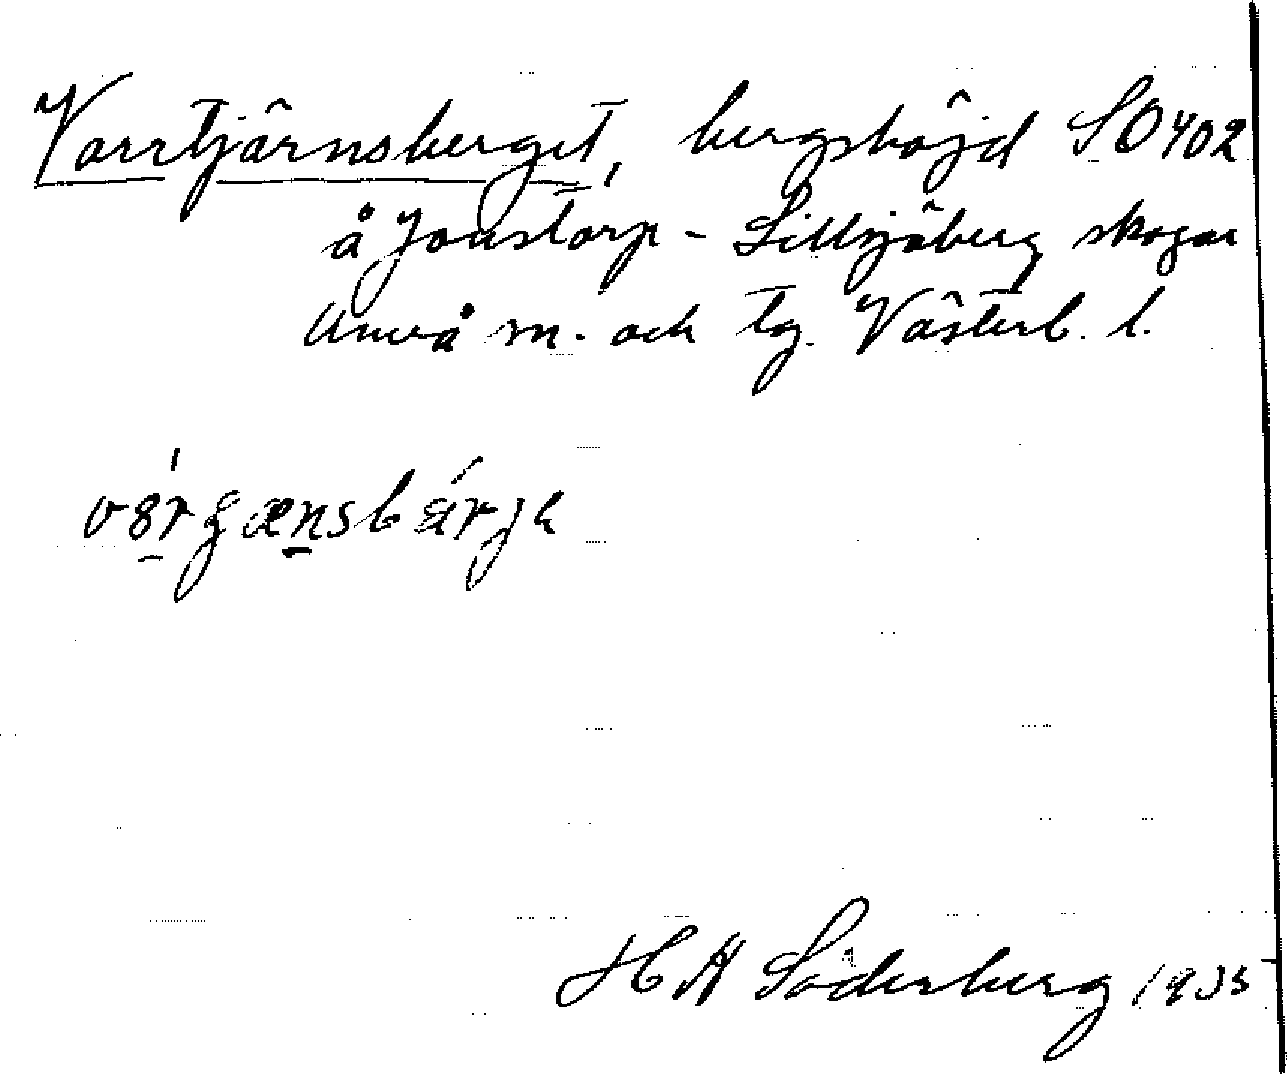 Vorrtjärnsberget, bergshöjd SO 402
å Jonstorp - Lillsjöberg skogar
Umeå sn. och tg. Västerb. l.
H A Söderberg 1935